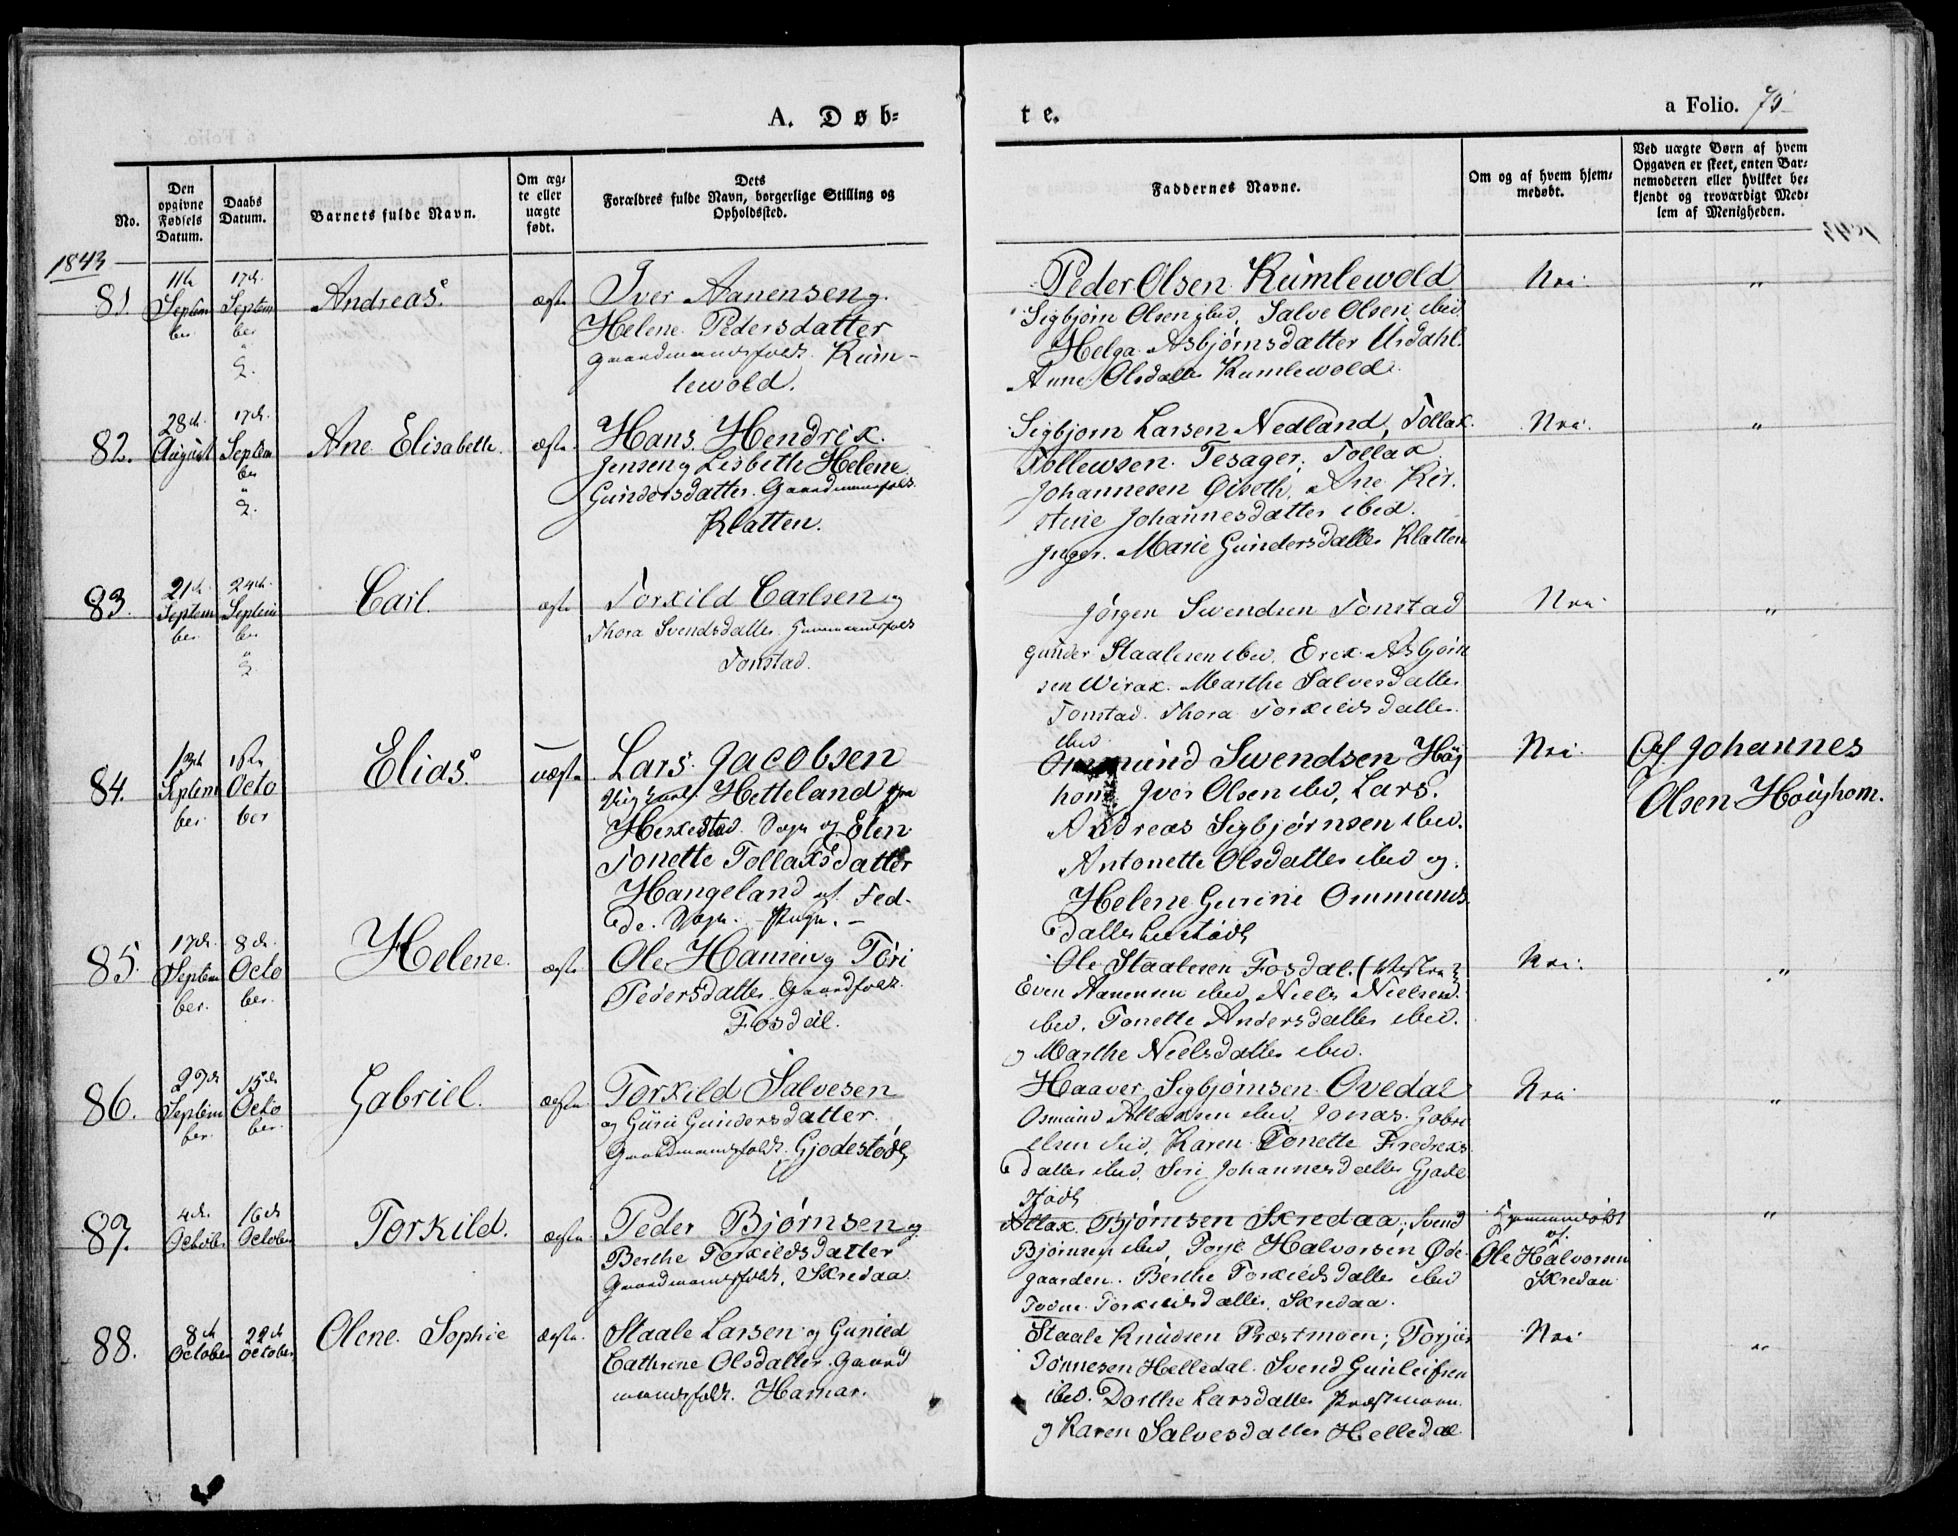 A. Døb=
te.
a Folio. 75
No.
Den
opgivne
Fødsels
Datum.
Daabs
Datum.
Barnets fulde Navn.
Om æg=
te eller
uægte
født.
Dets
Forældres fulde Navn, borgerlige Stilling og
Opholdssted.
Faddernes Navne.
Om og af hvem hjem=
medøbt.
Ved uægte Børn af hvem
Opgaven er skeet, enten Bar=
nemoderen eller hvilket be=
kjendt og troværdigt Med=
lem af Menigheden.
1843
81.
11te
Septem
ber
17de
Septem
ber
Andreas.
ægte
Iver Aanensen og
Helene Pedersdatter
Gaardmandsfolk. Kum-
lewold.
Peder Olsen Kumlewold
Sigbjørn Olsen ibid, Salve Olsen ibid
Helga Asbjørnsdatter Urdahl.
Anne Olsdatter Kumlewold.
Nei.
"
82.
28de
August
17de
Septem
ber
Ane Elisabeth.
ægte.
Hans Hendrik
Jensen og Lisbeth Helene
Gundersdatter. Gaardmandsfolk.
Klatten.
Sigbjørn Larsen Nedland, Tollak
Tollewsen Tesager, Tollak
Johannesen Øiseth, Ane Kir-
stine Johannesdatter ibid.
Inger Marie Gundersdatter Klatten
Nei.
"
83.
21de
Septem
ber.
24de
Septem
ber
Carl.
ægte
Torkild Carlsen og
Thora Svendsdatter
Tonstad.
Jørgen Swendsen Tonstad
Gunder Staalesen ibid, Erek Asbjørn
sen Wirak. Marthe Salvesdatter
Tonstad. Thora Torkildsdatter
ibid
Nei
"
84.
13de
Septem
ber.
1ste
Octo
ber
Elias.
uægte.
Lars Jacobsen
Hetteland
Heskestad Sogn og Elen
Tonette Tollaksdatter
Hangeland af Fed-
de Sogn.
Ommund Swendsen Høy
hom Iver Olsen ibid, Lars
Andreas Sigbjørnsen ibid.
Antonette Olsdatter ibid og
Helene Gurine Ommunds
datter
Nei.
Af Johannes
Olsen Høyhom.
85.
17de
Septem
ber.
8de
Octo
ber.
Helene.
ægte
Ole Hansen og Tori
Pedersdatter. Gaardfolk.
Fosdal.
Ole Staalesen Fosdal.
Even Aanensen ibid, Niels Nielsen
ibid. Tonette Andersdatter ibid.
og Marthe Nielsdatter ibid.
Nei.
"
86.
27de
Septem
ber.
15de
Octo
ber.
Gabriel.
ægte
Torkild Salvesen
og Guri Gundersdatter.
Gaardmandsfolk. Gjodestøl
Haaver Sigbjørnsen Ovedal
Osmund Atlaksen ibid, Jonas Gabri
elsen ibid, Karen Tonette Fredreks
datter ibid, Siri Johannesdatter Gjode
støl
Nei
"
87.
4de
October
16de
October
Torkild.
ægte.
Peder Bjørnsen og
Berthe Torkildsdatter
Gaardmandsfolk, Skredaa.
Atlak Bjørnsen Skredaa, Svend
Bjørnsen ibid, Torje Halvorsen Øde-
gaarden. Berthe Torkildsdatter ibid
Torkildsdatter, Skredaa.
Hjemmedøbt
af
Ole Halvorsen
Skredaa
"
88.
8de
October
22de
October
Olene Sophie
ægte.
Staale Larsen og Gunild
Cathrine Olsdatter. Gaard
mandsfolk. Hamar.
Staale Knudsen Præstmoen; Torjus
Tønnesen Helledal. Svend Gunleifsen
ibid. Dorthe Larsdatter Præstmoen
og Karen Salvesdatter Helledal
Nei
"